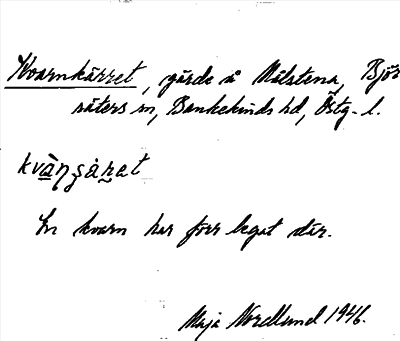 Kvarnkärret, gärde å Målstena, Björ
säters sn, Bankekinds hd, Östg. l.
kvàṇʂåṛat
En kvarn har förr legat där.
Maja Nordlund 1946.